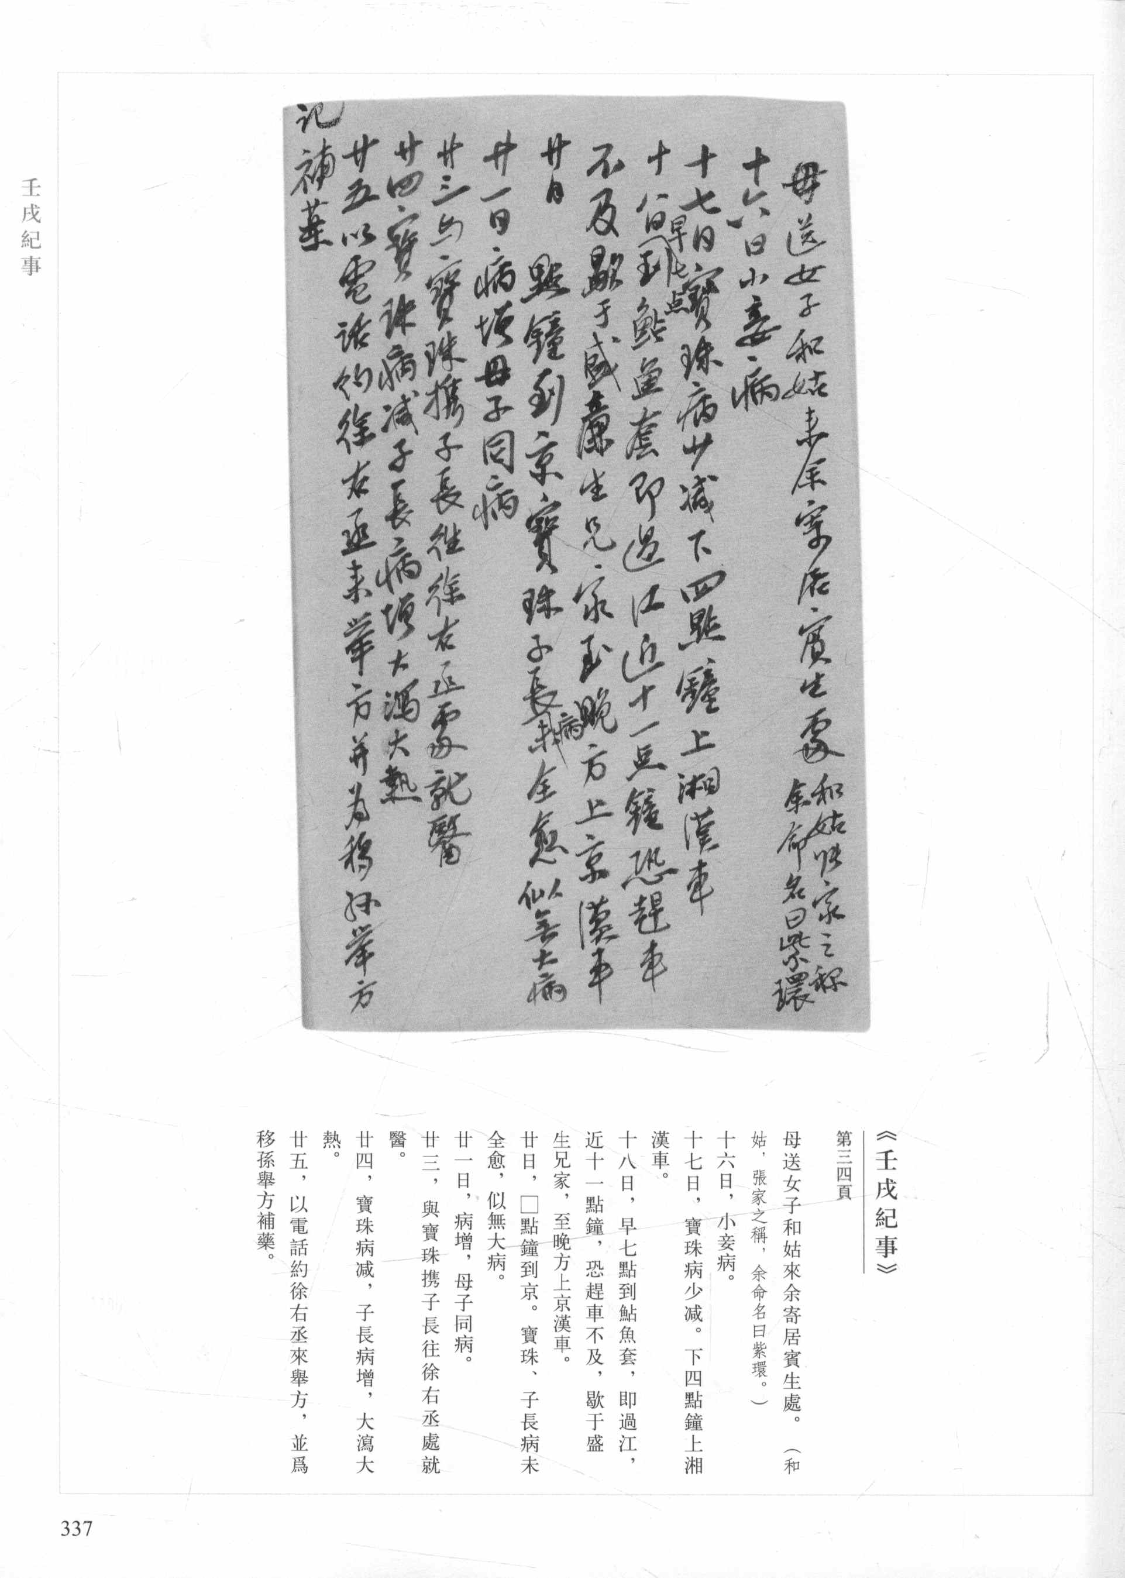 壬戌紀事
母送女子和姑来余寄居賓生處和姑張家之稱
余命名曰紫環
十六日小妾病
十七日寶珠病少減下四點鐘上湘漢車
十八日早七点到鮎魚套即過江近十一点鐘恐趕車
不及歇于盛蕭生兄家至晚方上京漢車
廿日 點鐘到京寶珠子長病未全愈似無大病
廿一日病增母子同病
廿三与寶珠携子長往徐右丞處就醫
廿四寶珠病減子長病增大瀉大熱
廿五以電話約徐右丞来舉方并為移孫舉方
補藥
記
《壬戌紀事》
第三四頁
母送女子和姑來余寄居賓生處。（和
姑，張家之稱，余命名曰紫環。）
十六日，小妾病。
十七日，寶珠病少減。下四點鐘上湘
漢車。
十八日，早七點到鮎魚套，即過江，
近十一點鐘，恐趕車不及，歇于盛
生兄家，至晚方上京漢車。
廿日，□點鐘到京。寶珠、子長病未
全愈，似無大病。
廿一日，病增，母子同病。
廿三，與寶珠携子長往徐右丞處就
醫。
廿四，寶珠病減，子長病增，大瀉大
熱。
廿五，以電話約徐右丞來舉方，並爲
移孫舉方補藥。
337